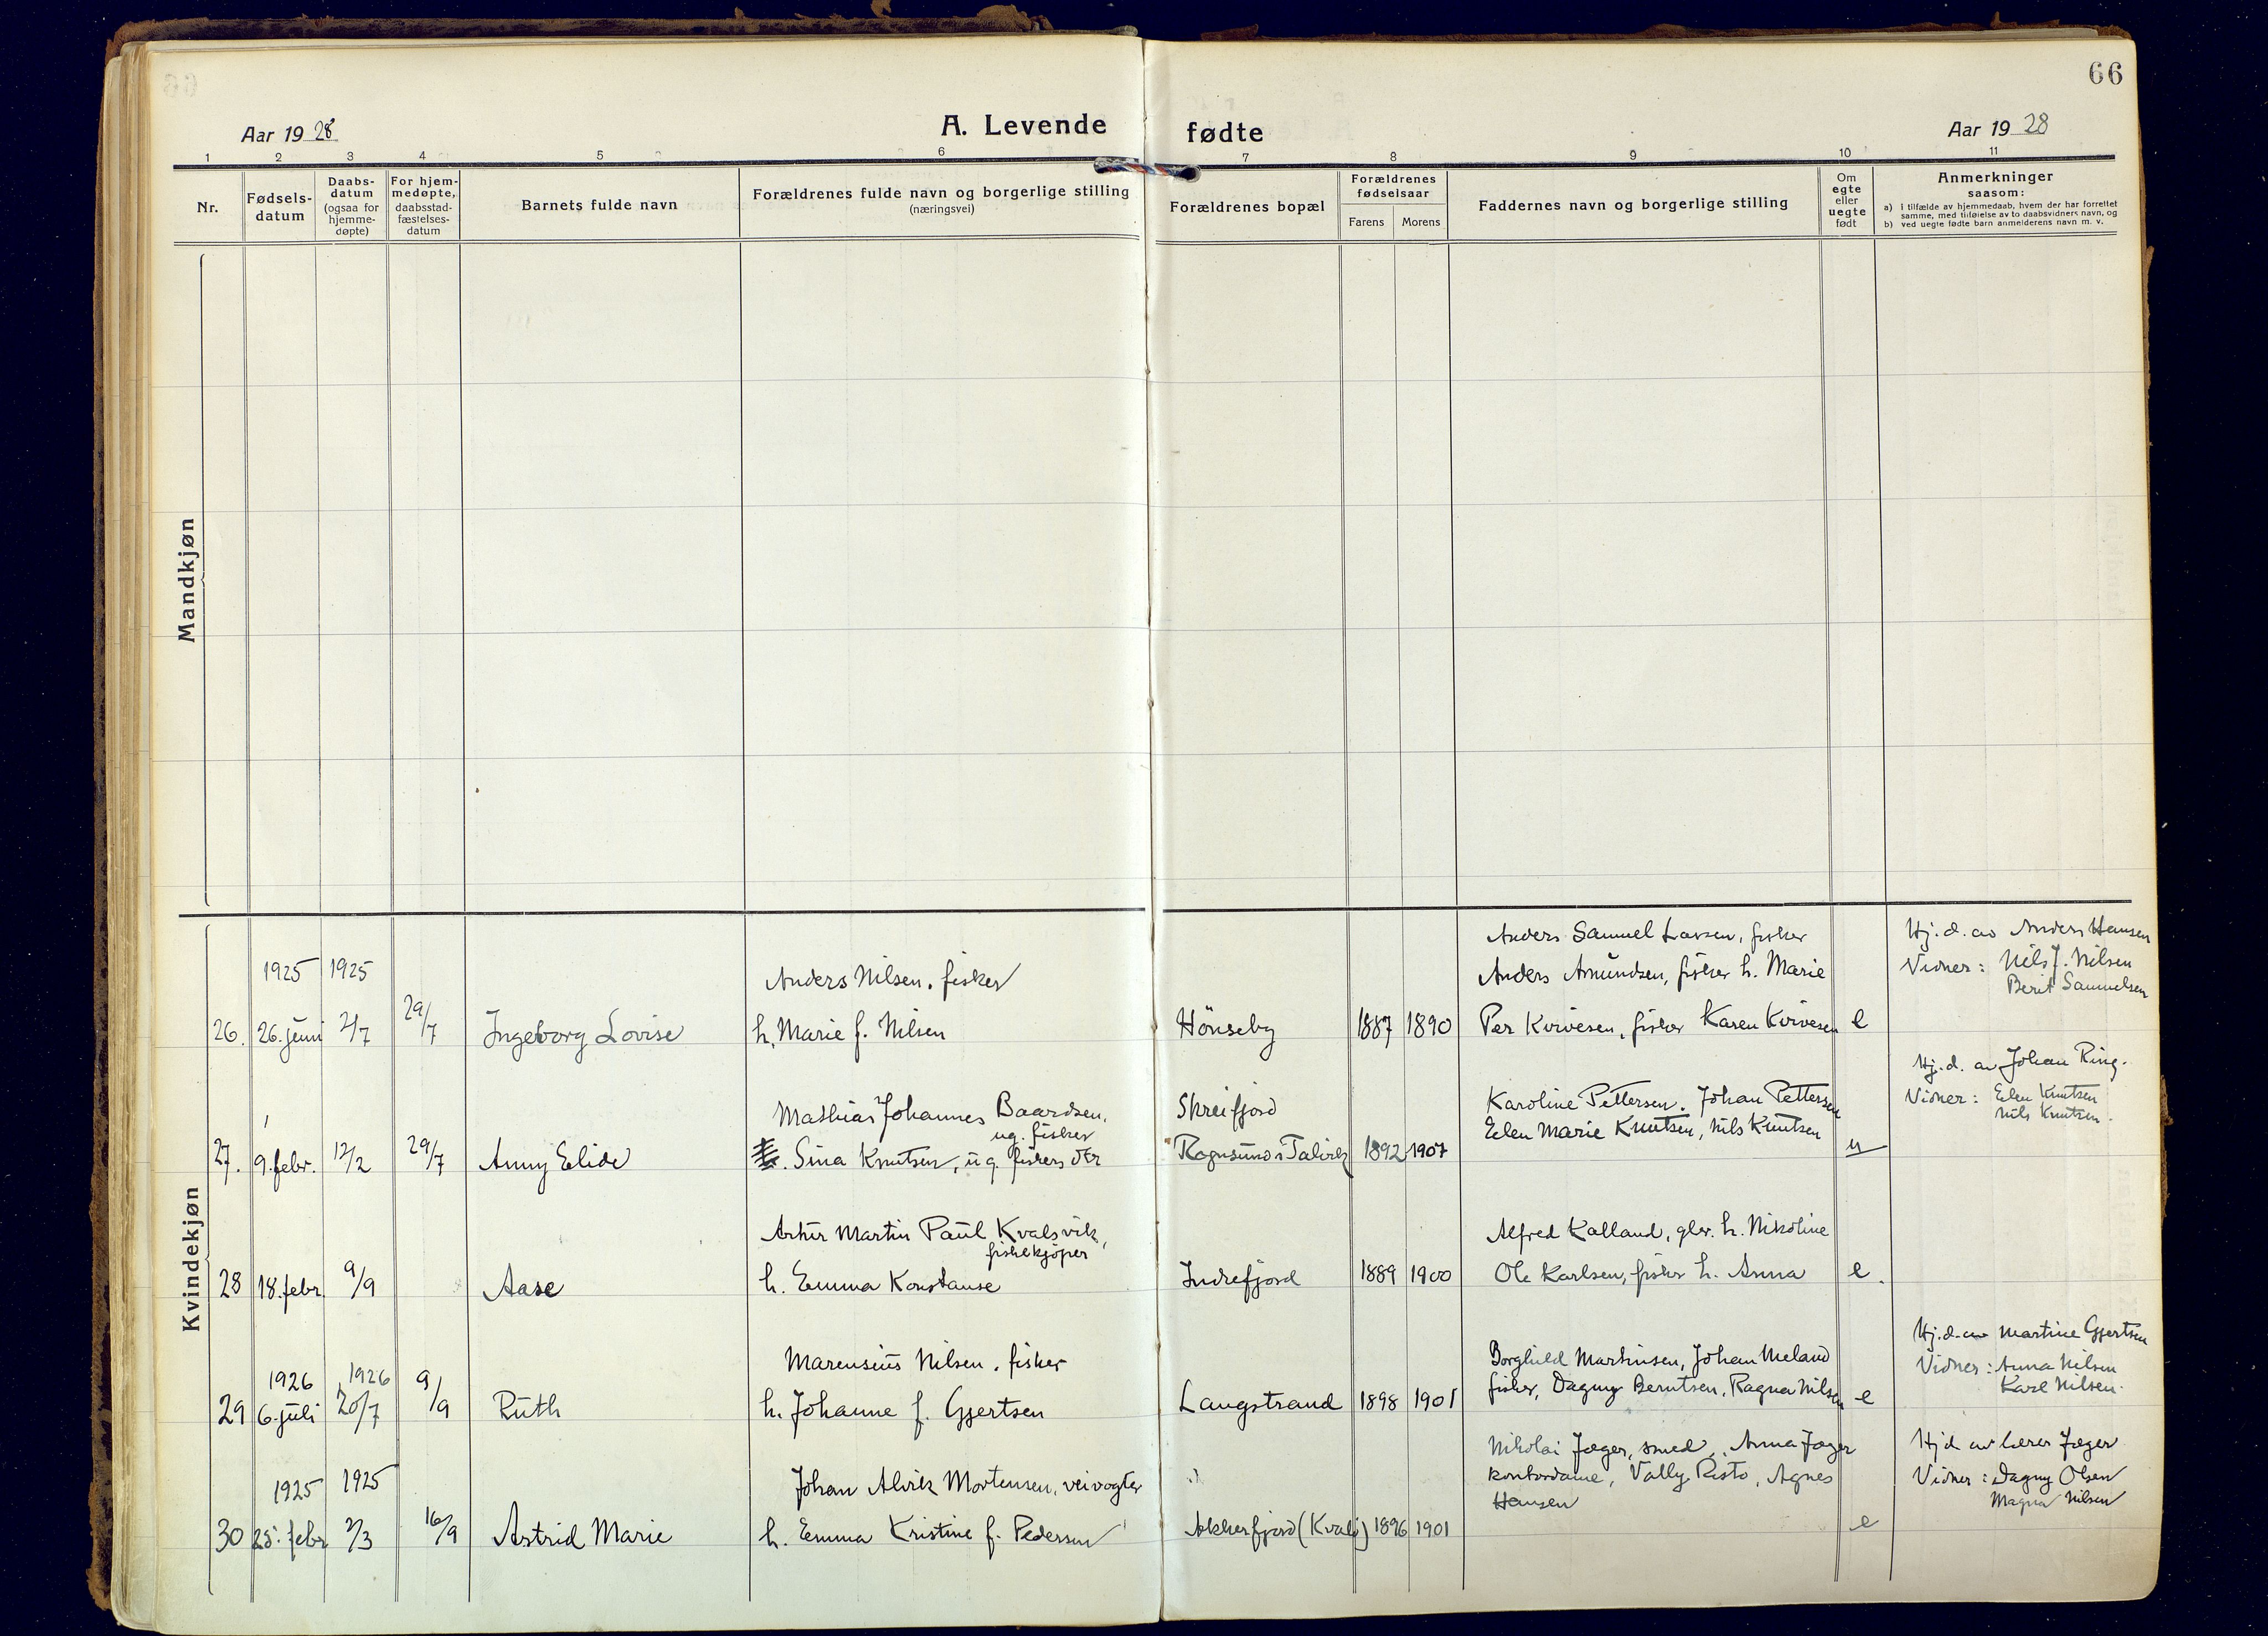 66
Aar 19 28
A. Levende fødte
Aar 19 28
1 2 3 4 5 6 7 8 9 10 11
Nr.
Fødsels-
datum
Daabs-
datum
(ogsaa for
hjemme-
døpte)
For hjem-
medøpte,
daabsstad-
fæstelses-
datum
Barnets fulde navn
Forældrenes fulde navn og borgerlige stilling
(næringsvei)
Forældrenes bopæl
Forældrenes
fødselsaar
Farens Morens
Faddernes navn og borgerlige stilling
Om
egte
eller
uegte
født
Anmerkninger
saasom:
a) i tilfælde av hjemmedaab, hvem der har forrettet
samme, med tilføielse av to daabsvidners navn, og
b) ved uegte fødte barn anmelderens navn m. v.
Mandkjøn
Kvindekjøn
26.
1925
26. juni
1925
2/7
29/7
Ingeborg Lovise
Anders Nilsen, fisker
h. Marie f. Nilsen
Hönseby
1887 1890
Anders Samuel Larsen, fisker
Anders Amundsen, fisker h. Marie
Per Kvivesen, fisker Karen Kvivesen
e
Hj. d. av Anders Hansen
Vidner: Nils J. Nilsen
Berit Samuelsen
27.
9. febr.
12/2
29/7
Anny Elide
Mathias Johannes Baardsen,
ug. fisker
Sina Knutsen, ug. fiskers dtr
Skreifjord
Rognsund i Talvik
1892 1907
Karoline Pettersen. Johan Pettersen
Elen Marie Knutsen, Nils Knutsen
u
Hj. d. av Johan Ring.
Vidner: Elen Knutsen
Nils Knutsen.
28
18. febr.
9/9
Aase
Artur Martin Paul Kvalsvik,
fiskekjöper
h. Emma Konstanse
Indrefjord
1889 1900
Alfred Kalland, glsr. h. Nikoline
Ole Karlsen, fisker h. Anna
e.
29
1926
6. juli
1926
20/7
9/9
Ruth
Marensius Nilsen, fisker
h. Johanne f. Gjertsen
Langstrand
1898 1901
Borghild Martinsen, Johan Meland
fisker, Dagny Berntsen, Ragna Nilsen
e
Hj. d. av Martine Gjertsen
Vidner: Anna Nilsen
Karl Nilsen.
30
1925
25. febr
1925
2/3
16/9
Astrid Marie
Johan Alvik Mortensen, veivogter
h. Emma Kristine f. Pedersen
Akkerfjord (Kvalö)
1896 1901
Nikolai Jæger, smed, Anna Jæger
kontordame, Vally Risto, Agnes
Hansen
e
Hj d av lærer Jæger
Vidner: Dagny Olsen
Magna Nilsen